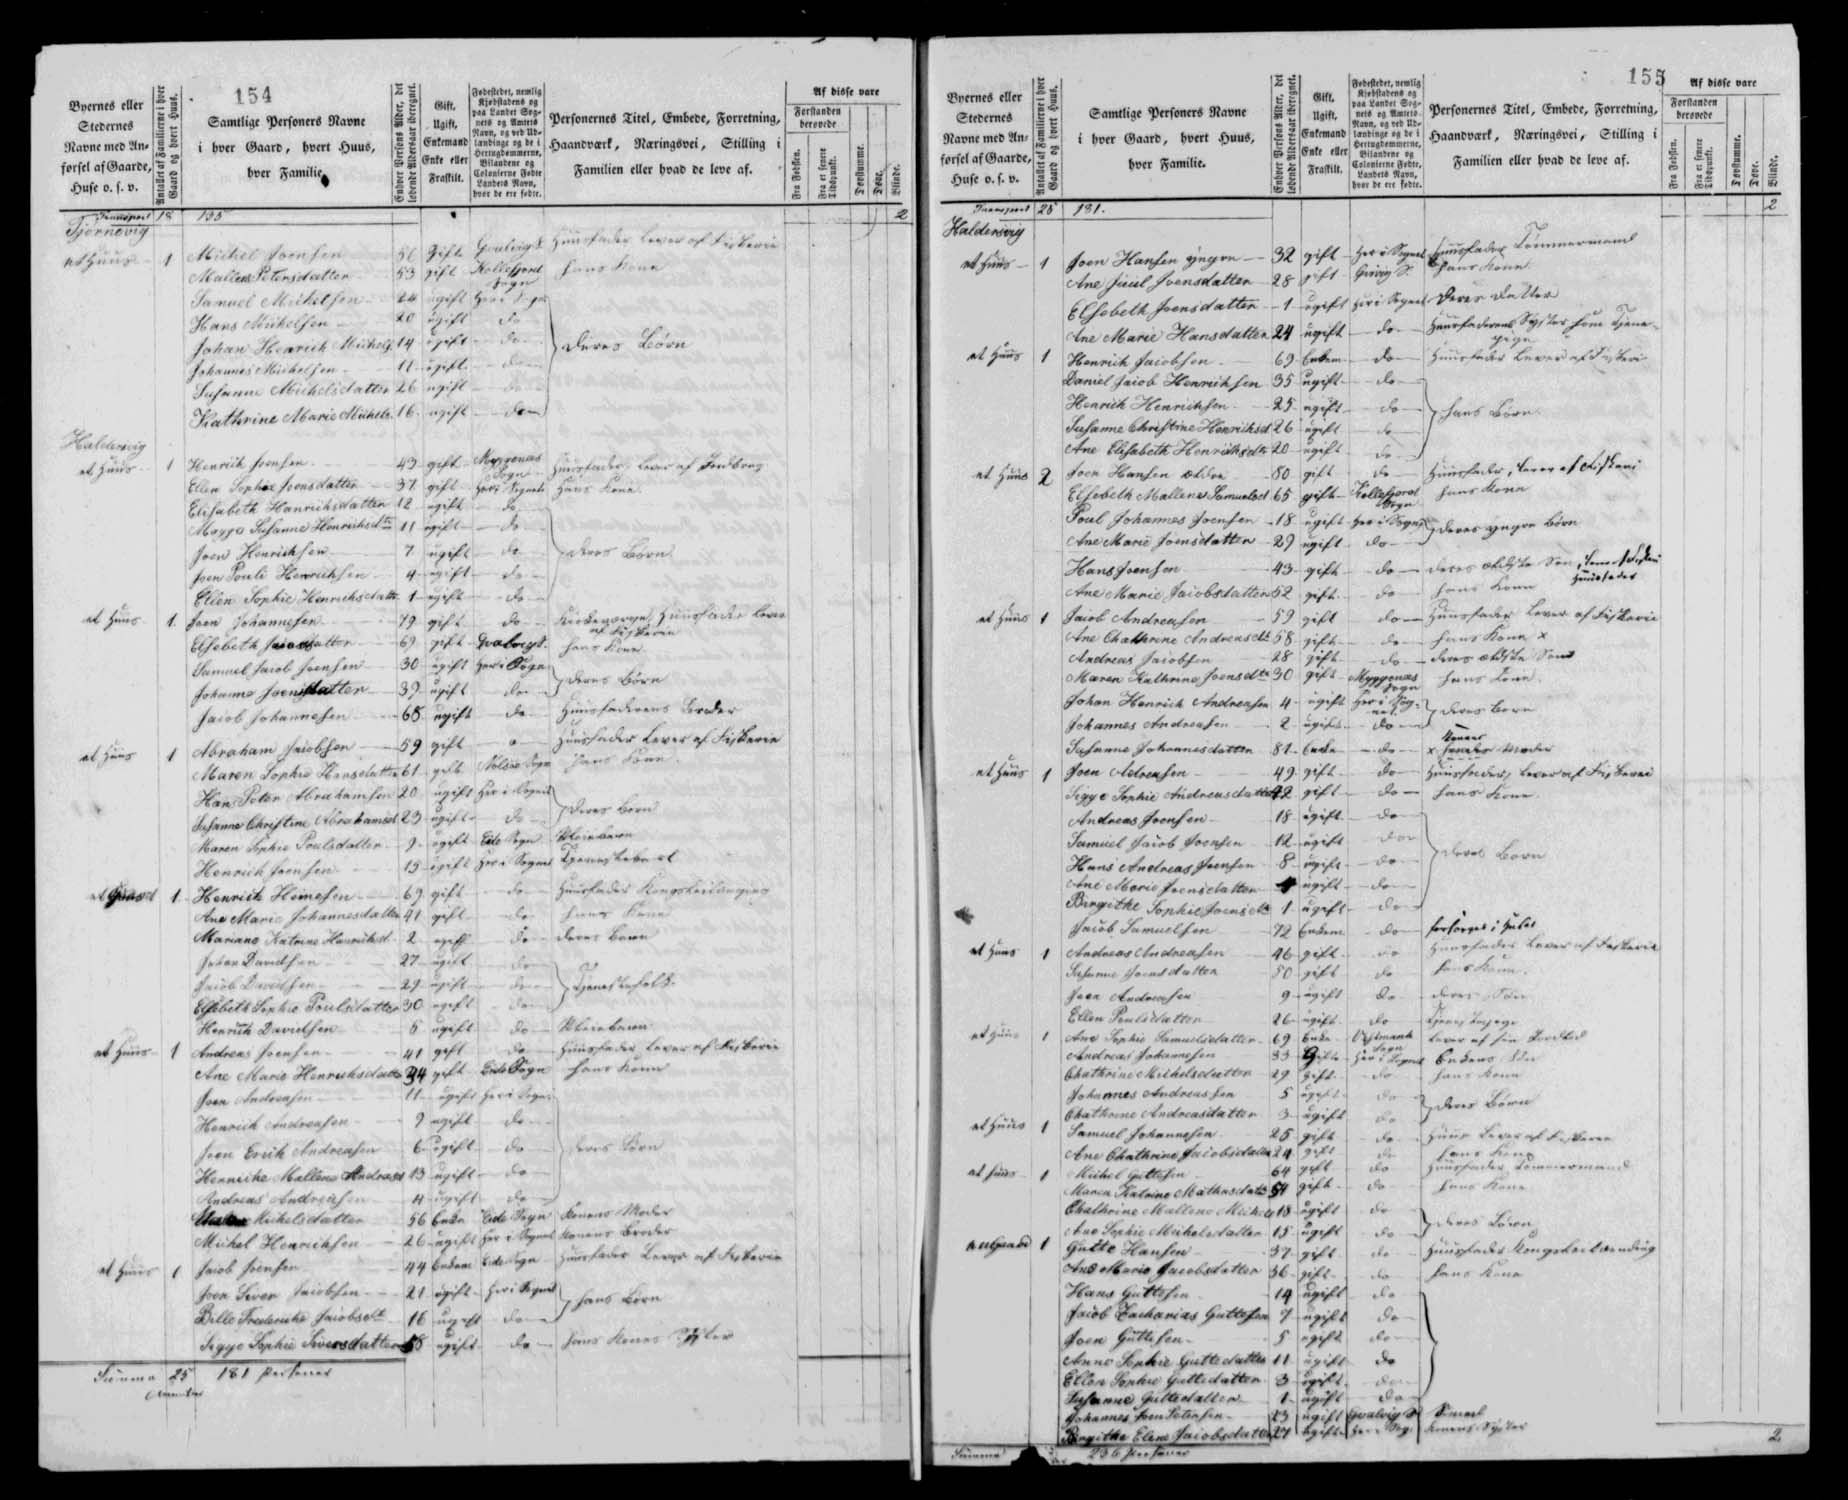 154
Byernes eller Stedernes Navne med Anførsel af Gaarde, Huse o. s. v.
Antallet af Familierne i hver Gaard og hvert Huus.
Samtlige Personers Navne i hver Gaard, hvert Huus, hver Familie.
Enhver Persons Alder, det løbende Aldersaar iberegnet.
Gift, Ugift, Enkemand Enke eller Fraskilt.
Fødestedet, nemlig Kjøbstadens og paa Landet Sognets og Amtets Navn, og ved Udlændinge og de i Hertugdømmerne, Bilandene og Colonierne Fødte Landets Navn, hvor de ere fødte.
Personernes Titel, Embede, Forretning, Haandværk, Næringsvei, Stilling i Familien eller hvad de leve af.
Af disse vare
Forstanden berøvede
Fra Fødslen.
Fra et senere Tidspunkt.
Døvstumme.
Døve.
Blinde.
Transport 18 135 2
Tjørnevig
et Huus 1 Michel Joensen 56 gift Huusfader lever af Fiskerie
Mallene Petersdatter 53 gift Kollefjord Sogn hans Kone
Samuel Michelsen 24 ugift Her i Sogn
Hans Michelsen 20 ugift do
Johan Henrich Michels 14 ugift do deres Børn
Johannes Michelsen 11 ugift do
Susanne Michelsdatter 26 ugift do
Kathrine Marie Michels 16 ugift do
Haldersvig
et Huus 1 Henrich Joensen 43 gift Myggenæs Sogn Huusfader, lever af Jordbrug
Ellen Sophie Joensdatter 37 gift Her i Sognet hans Kone
Elisabeth Hanrichsdatter 12 ugift do
Susanne Henrichsdtr 11 ugift do
Joen Henrichsen 7 ugift do deres Børn
Joen Pouli Henrichsen 4 ugift do
Ellen Sophie Henrichsdatter 1 ugift do
et Huus 1 Joen Johannesen 79 gift do Huusfader lever af Fiskerie
Elsebeth 69 gift hans Kone
Samuel Jacob Joensen 30 ugift Her i Sogn
Johanne Joensdatter 39 ugift do deres Børn
Jacob Johannesen 68 ugift do Huusfaderens Broder
et Huus 1 Abraham Jacobsen 59 gift Huusfader lever af Fiskerie
Maren Sophie Hansdatter 61 gift Nolsøe Sogn hans Kone
Hans Peter Abrahamsen 20 ugift Her i Sognet
Susanne Christine Abrahamsd 23 ugift do deres Børn
Maren Sophie Poulsdatter 9 ugift Eide Sogn Pleiebarn
Henrich Joensen 13 ugift Her i Sognet
1 Henrich Heinesen 69 gift do Huusfader
Ane Marie Johannesdatter 41 gift do hans Kone
Mariane Katrine Hanrichsd 2 ugift do deres Barn
Johan Davidsen 27 ugift do
Jacob Davidsen 29 ugift do Tjenestefolk
Elsebeth Sophie Poulsdatter 30 ugift do
Henrich Davidsen 5 ugift do Pleiebarn
et Huus 1 Andreas Joensen 41 gift do Huusfader lever af Fiskerie
Ane Marie Henrichsdatter 34 gift Eide Sogn hans Kone
Joen Andreasen 11 ugift Her i Sogn
Henrich Andreasen 9 ugift do
Joen Erich Andreasen 6 ugift do deres Børn
Henricke Mallene Andreasd 13 ugift do
Andreas Andreasen 4 ugift do
Michelsdatter 56 Enke Eide Sogn Konens Moder
Michel Henrichsen 26 ugift Her i Sognet Konens Broder
et Huus 1 Jacob Joensen 44 Enkem Eide Sogn Huusfader lever af Fiskerie
Joen Sever Jacobsen 21 ugift Her i Sognet
Bille Frederiche Jacobsdt 16 ugift do hans Børn
Sigge Sophie Siversdatter 58 ugift do hans Kones Syster
Summa 25 181 Personer
155
Byernes eller Stedernes Navne med Anførsel af Gaarde, Huse o. s. v.
Antallet af Familierne i hver Gaard og hvert Huus.
Samtlige Personers Navne i hver Gaard, hvert Huus, hver Familie.
Enhver Persons Alder, det løbende Aldersaar iberegnet.
Gift, Ugift, Enkemand Enke eller Fraskilt.
Fødestedet, nemlig Kjøbstadens og paa Landet Sognets og Amtets Navn, og ved Udlændinge og de i Hertugdømmerne, Bilandene og Colonierne Fødte Landets Navn, hvor de ere fødte.
Personernes Titel, Embede, Forretning, Haandværk, Næringsvei, Stilling i Familien eller hvad de leve af.
Af disse vare
Forstanden berøvede
Fra Fødslen.
Fra et senere Tidspunkt.
Døvstumme.
Døve.
Blinde.
Transport 25 181. 2
Haldersvig
et Huus 1 Joen Hansen yngre 32 gift Her i Sognet Huusfader Tømmermand
Ane Juul Joensdatter 28 gift hans Kone
Elsebeth Joensdatter 1 ugift Her i Sognet deres datter
Ane Marie Hansdatter 24 ugift do Huusfaderens Syster som Tjenepige
et Huus 1 Henrich Jacobsen 69 Enkem do Huusfader lever af Fiskeri
Daniel Jacob Henrichsen 35 ugift do
Henrich Henrichsen 25 ugift do hans Børn
Susanne Christine Henrichsd 26 ugift do
Ane Elisabeth Henrichsdtr 20 ugift do
et Huus 2 Joen Hansen ældre 80 gift do Huusfader, lever af Fiskeri
Elsebeth Mallene Samuelsd 65 gift Kollefjord Sogn hans Kone
Poul Johannes Joensen 18 ugift Her i Sogn deres yngre Børn
Ane Marie Joensdatter 29 ugift do
Hans Joensen 43 gift do deres ældste Søn, lever af Fiskeri Huusfader
Ane Marie Jacobsdatter 52 gift do hans Kone
et Huus 1 Jacob Andreasen 59 gift do Huusfader lever af Fiskerie
Ane Chathrine Andreasdt 58 gift do hans Kone x
Andreas Jacobsen 28 gift do deres ældste Søn
Maren Kathrine Joensdtr 30 gift Myggenæs Sogn hans Kone
Johan Henrich Andreasen 4 ugift Her i Sognet deres Børn
Johannes Andreasen 2 ugift do
Susanne Johannesdatter 81 Enke do x Konens Moder
et Huus 1 Joen Adreasen 49 gift do Huusfader, lever af Fiskeri
Sigge Sophie Andreasdatter 42 gift do hans Kone
Andreas Joensen 18 ugift do
Samuel Jacob Joensen 12 ugift do
Hans Andreas Joensen 8 ugift do deres Børn
Ane Marie Joensdatter 4 ugift do
Birgithe Sophie Joensdt 1 ugift do
Jacob Samuelsen 72 Enkem do forsørges i Huset
et Huus 1 Andreas Andreasen 46 gift do Huusfader lever af Fiskerie
Susanne Joensdatter 50 gift do hans Kone
Joen Andreasen 9 ugift do deres Søn
Ellen Poulsdatter 26 ugift do Tjenestepige
et Huus 1 Ane Sophie Samuelsdatter 69 Enke Vestmanh Sogn lever af sin Jordlod
Andreas Johannesen 33 Gift Her i Sognet Enkens Søn
Chathrine Michelsdatter 29 gift do hans Kone
Johannes Andreassen 5 ugift do deres Børn
Chathrine Andreasdatter 3 ugift do
et Huus 1 Samuel Johannesen 25 gift do Huusf lever af Fiskerie
Ane Chathrine Jacobsdatter 24 gift do hans Kone
et Huus 1 Michel Guttesen 64 gift do Huusfader Tømmermand
Maren Katrine Mathiasdatr 54 gift do hans Kone
Chathrine Mallene Michels 18 ugift do deres Børn
Ane Sophie Michelsdatter 15 ugift do
1 Gutte Hansen 37 gift do Huusfader
Ane Marie Jacobsdatter 36 gift do hans Kone
Hans Guttesen 14 ugift do
Jacob Zacharias Guttesen 7 ugift do
Joen Guttesen 5 ugift do
Anne Sophie Guttedatter 11 ugift do
Ellen Sophie Guttedatter 3 ugift do
Susanne Guttedatter 1 ugift do
Johannes Joen Petersen 23 ugift
Birgithe Elene Jacobsdatter 27 ugift Her i Sog. Konens Syster
2.
Summa 236 Personer